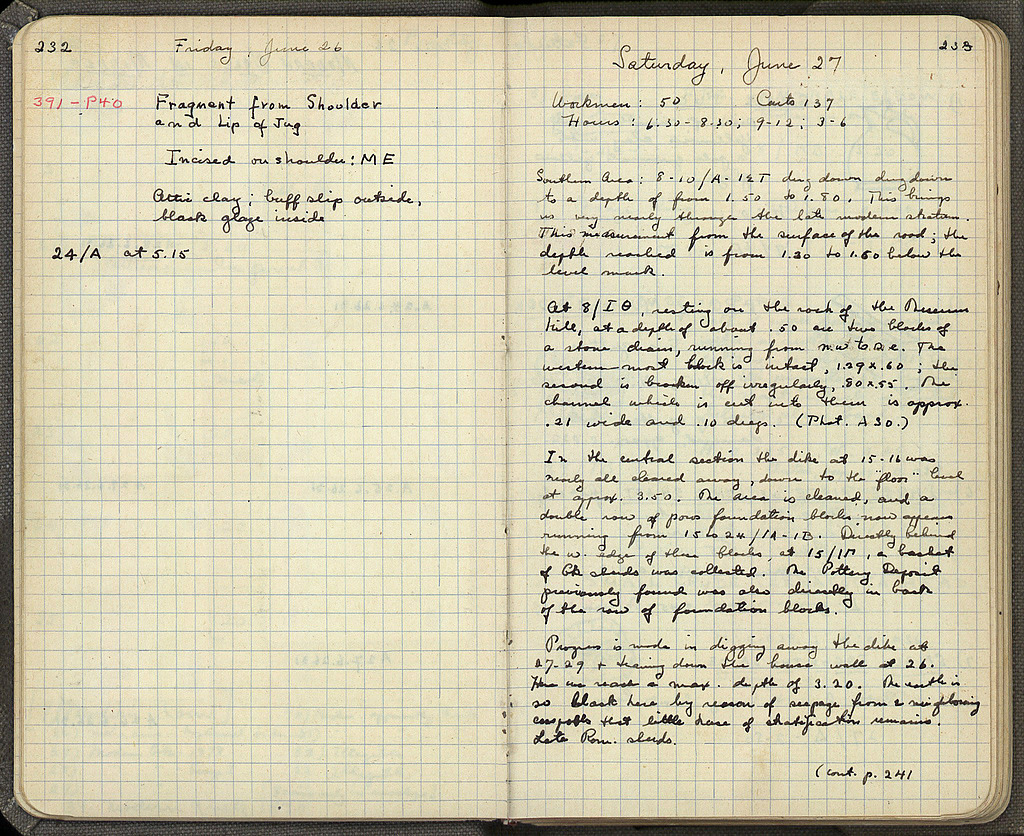 232
Friday, June 26
391 - P40 Fragment from Shoulder
and Lip of Jug
Incised on shoulder: ME
Attic clay; buff slip outside,
black glaze inside
24/A at 5.15
233
Saturday, June 27
Workmen: 50 Carts 137
Hours: 6.30-8.30; 9-12; 3-6
Southern Area: 8-10/A-IET dug down dug down
to a depth of from 1.50 to 1.80. This brings
us very nearly through the late modern stratum.
This measurement from the surface of the road; the
depth reached is from 1.30 to 1.60 below the
level mark.
At 8/IΘ, resting on the rock of the Museum
Hill, at a depth of about .50 are two blocks of
a stone drain, running from n.w. to s.e. The
western most block is intact, 1.29 x .60; the
second is broken off irregularly, .80 x .55. The
channel which is cut into them is approx.
.21 wide and .10 deep. (Phot. A 30.)
In the central section the dike at 15-16 was
nearly all cleared away, down to the "floor" level
at approx. 3.50. The area is cleaned, and a
double row of poros foundation blocks now appears
running from 15 to 24/IA-IB. Directly behind
the w. edge of these blocks, at 15/IΓ, a basket
of Gk sherds was collected. The Pottery Deposit
previously found was also directly in back
of the row of foundation blocks.
Progress is made in digging away the dike at
27-29 + tearing down the house wall at 26.
Here we reach a max. depth of 3.20. The earth is
so black here by reason of seepage from a neighboring
cesspools that little trace of stratification remains.
Late Rom. sherds.
(cont. p. 241